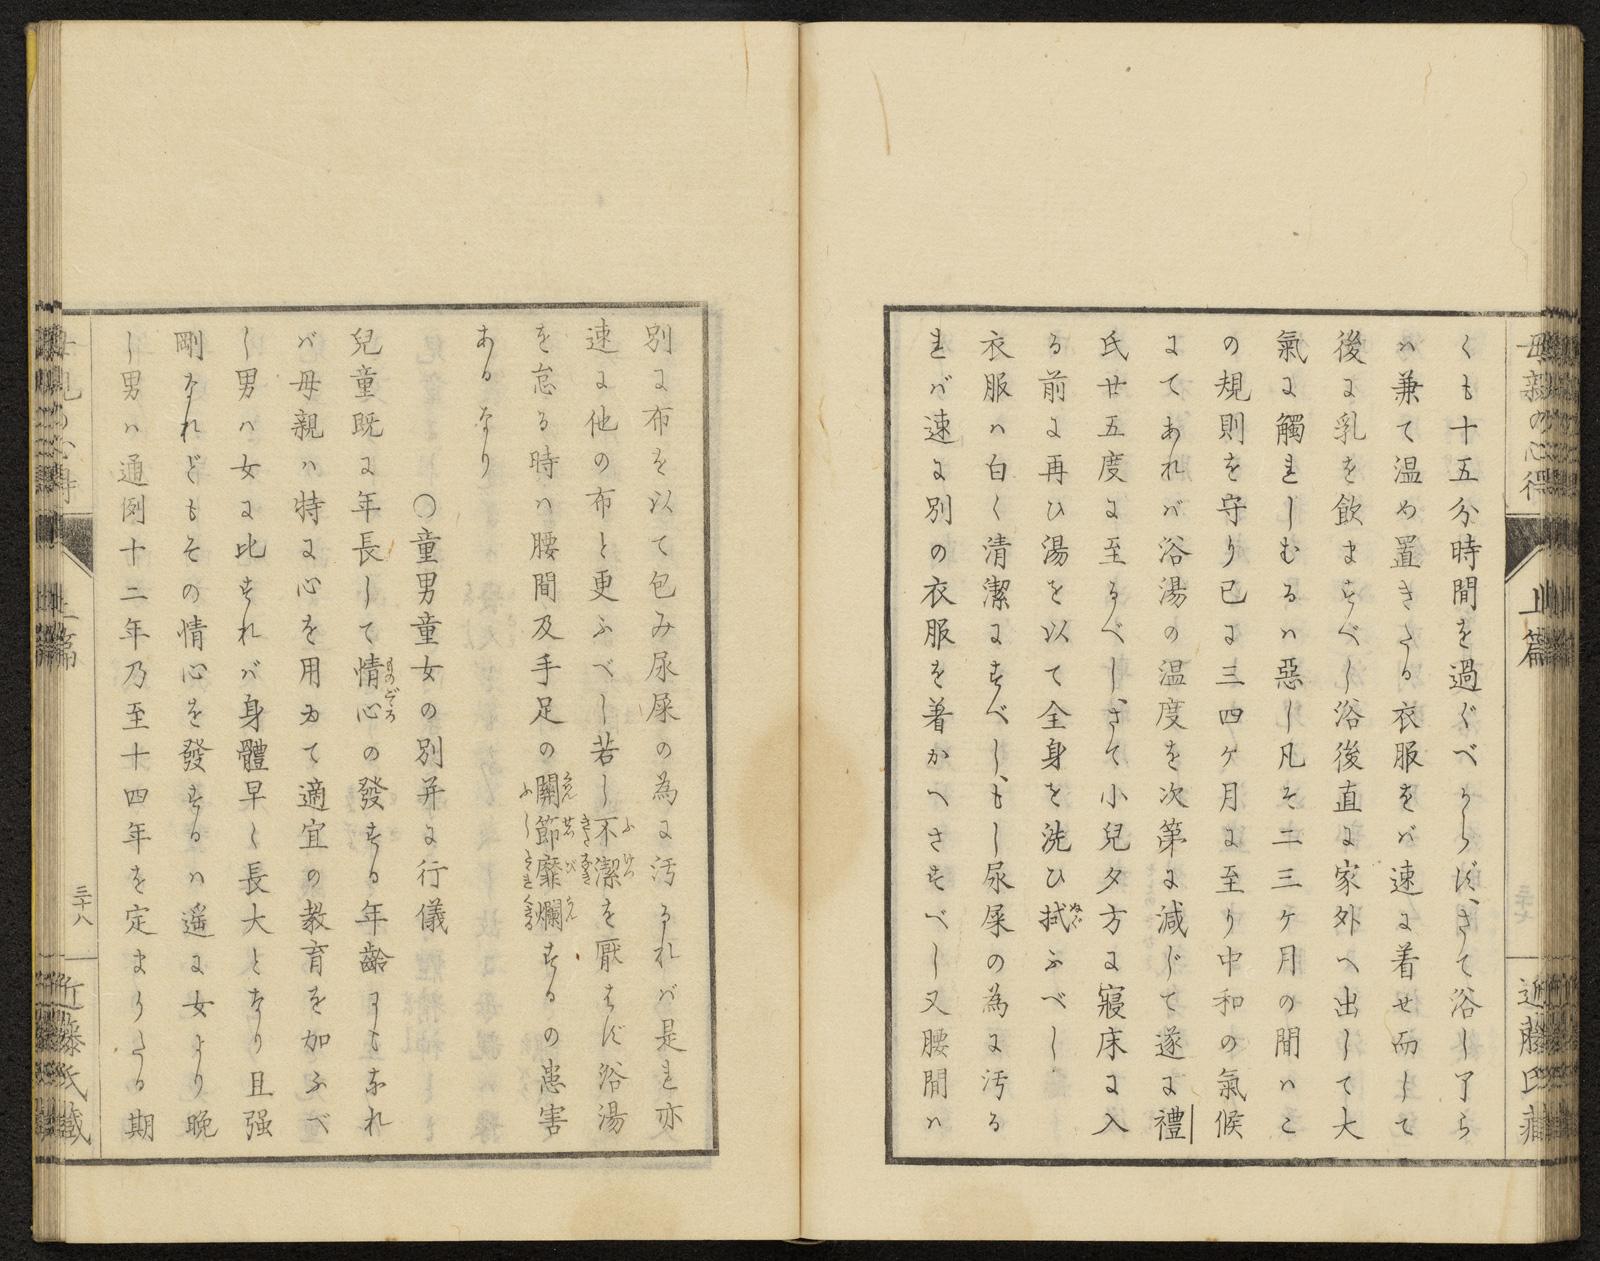 母親の心得
上篇
三十七
近藤氏藏
くも十五分時間を過ぐべからず、さて浴し了ら
ハ兼て温め置きたる衣服をバ速に着せ而して
後に乳を飲ますべし浴後直に家外へ出して大
氣に觸れしむるハ惡し凡そ二三ヶ月の間ハこ
の規則を守り已に三四ヶ月に至り中和の氣候
にてあれバ浴湯の温度を次第に減じて遂に禮
氏廿五度に至るべし、さて小兒夕方に寢床に入
る前に再ひ湯を以て全身を洗ひ拭ふべし
ぬぐ
衣服ハ白く清潔にすべし、もし尿屎の為に汚る
れバ速に別の衣服を着かへさすべし又腰間ハ
別に布を以て包み尿屎の為に汚るれバ是れ亦
速に他の布と更ふべし若し不潔を厭はず浴湯
ふけつ
を怠る時ハ腰間及手足の關節靡爛するの患害
くゎんせつびらん
あるなり
○童男童女の別并に行儀
兒童既に年長して情心の發する年齡にもなれ
ものごころ
バ母親ハ特に心を用ゐて適宜の教育を加ふべ
し男ハ女に比すれバ身體早く長大となり且强
剛なれどもその情心を發するハ遥に女より晩
し男ハ通例十二年乃至十四年を定まりたる期
上篇
三十八
近藤氏藏